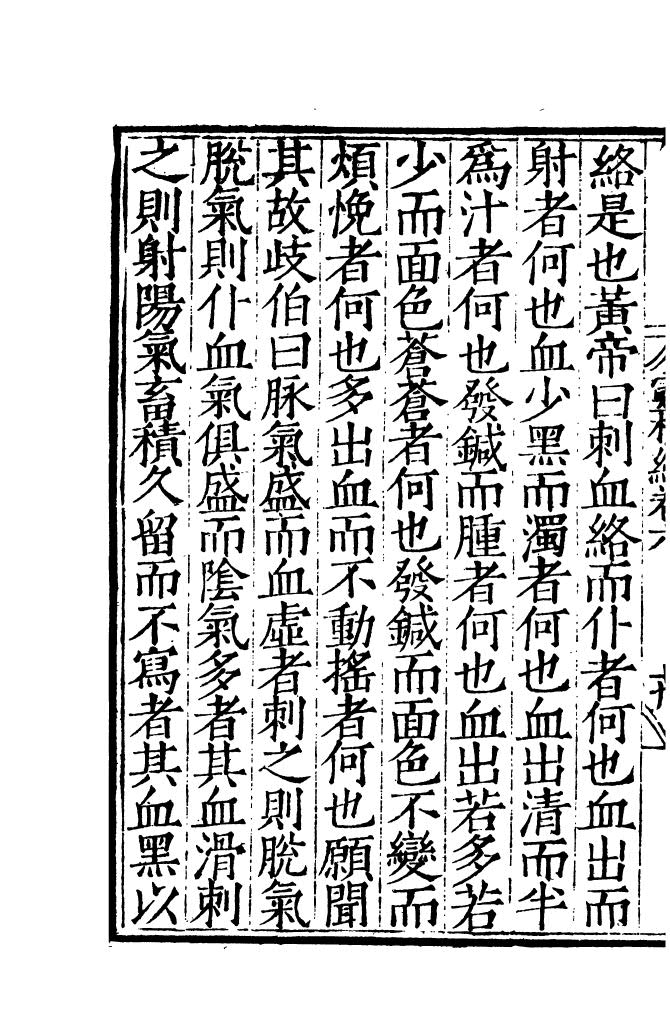 絡是也黃帝曰刺血絡而仆者何也血出而
射者何也血少黑而濁者何也血出清而半
爲汁者何也發鍼而腫者何也血出若多若
少而面色蒼蒼者何也發鍼而面色不變而
煩悗者何也多出血而不動搖者何也願聞
其故歧伯曰脉氣盛而血虛者刺之則脫氣
脫氣則仆血氣俱盛而陰氣多者其血滑刺
之則射陽氣畜積久留而不寫者其血黑以